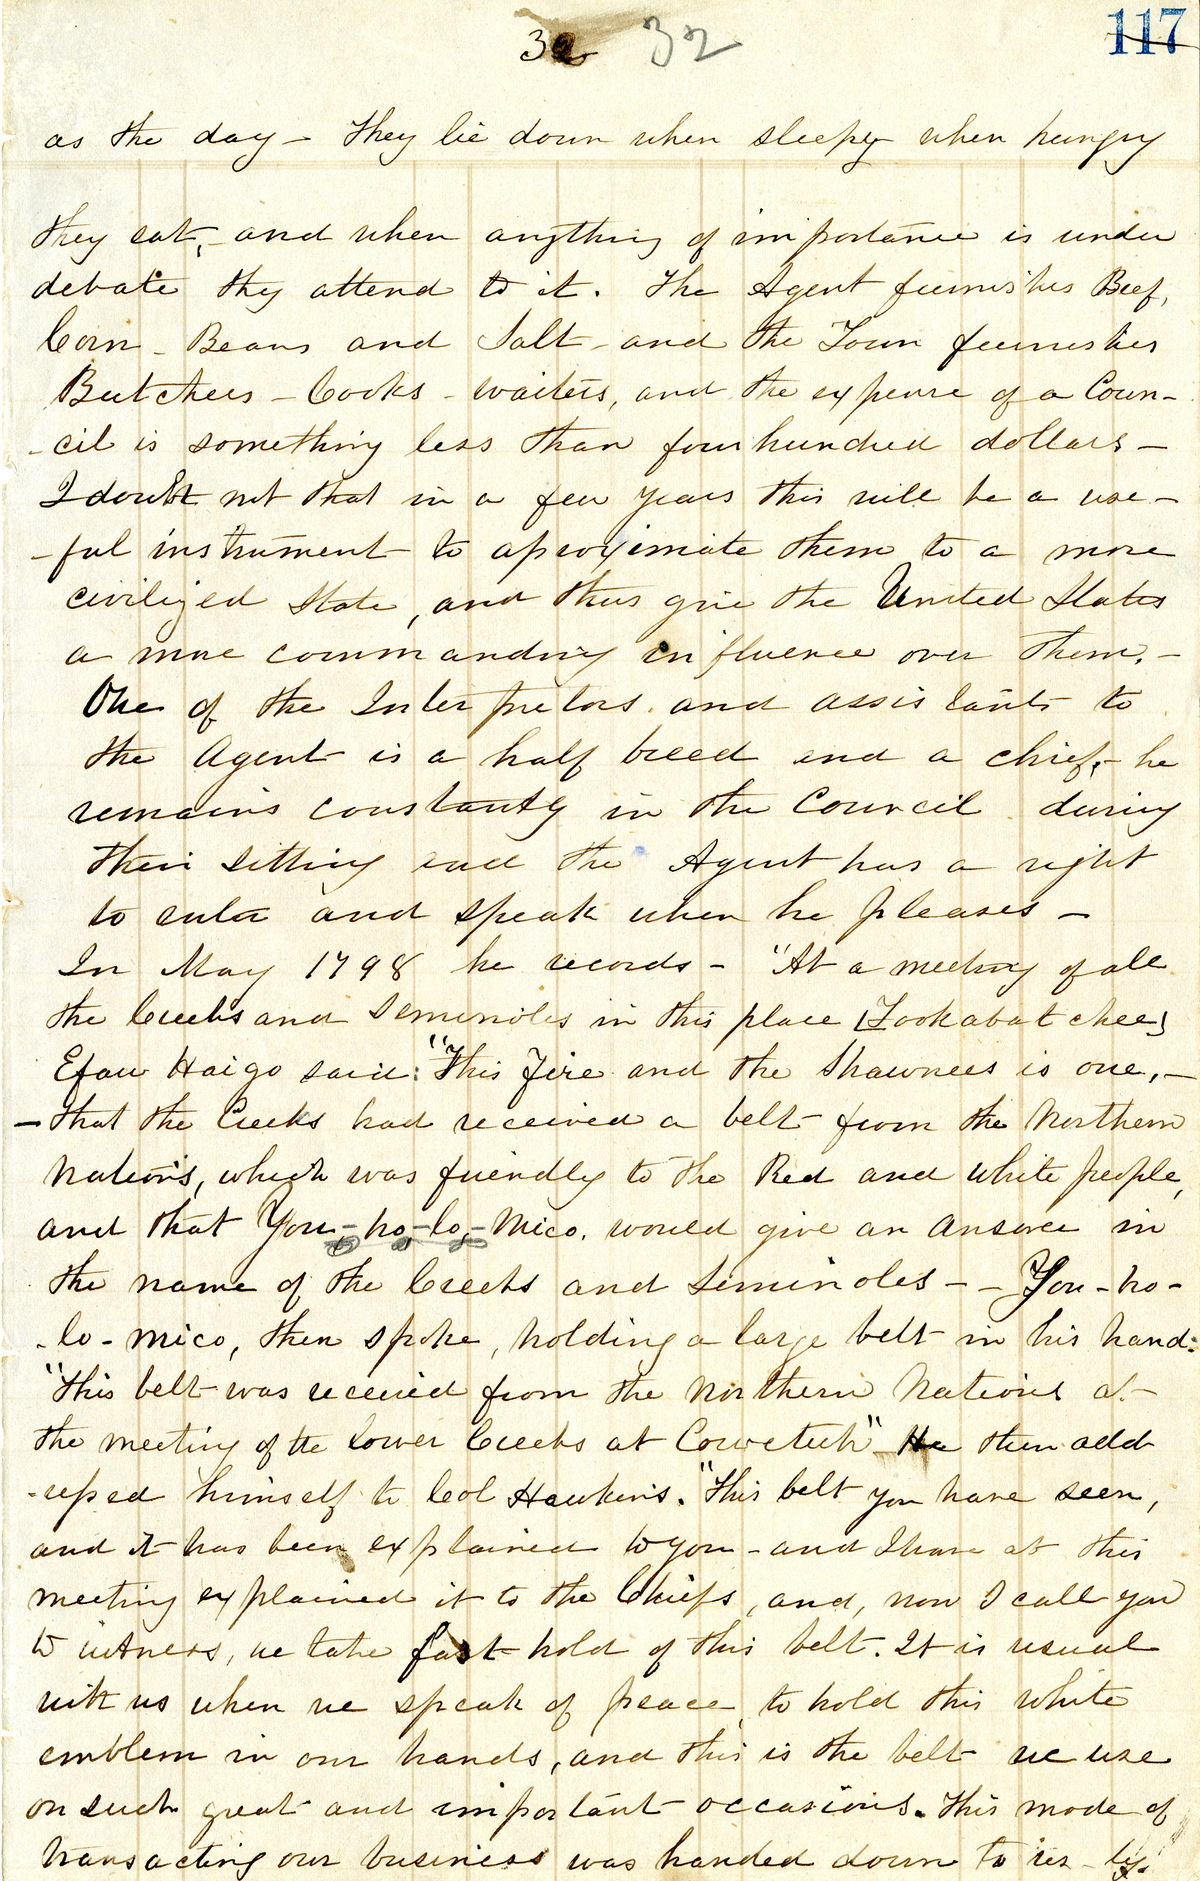 32 32 117
as the day – They lie down when sleepy when hungry
they eat, and when anything of importance is under
debate they attend to it. The Agent furnishes Beef,
Corn – Beans and Salt – and the Town furnishes
Butchers – Cooks – waiters, and the expense of a Coun-
-cil is something less than four hundred dollars –
I doubt not that in a few years this will be a use-
-ful instrument to aproximate them to a more
civilized State, and thus give the United States
a more commanding influence over them. –
One of the Interpretors and assistants to
the Agent is a half breed and a chief, – he
remains constantly in the Council during
their sitting and the Agent has a right
to enter and speak when he pleases –
In May 1798 he records – "At a meeting of all
the Creeks and Seminoles in this place [Tookabatchee]
Efau Haigo said: "This Fire and the Shawnees is one, –
– that the Creeks had received a belt from the Northern
Nations, which was friendly to the Red and white people,
and that You-ho-lo-Mico. would give an answer in
the name of the Creeks and Seminoles – – You-ho-
-lo-Mico, then spoke, holding a large belt in his hand:
"This belt was received from the Northern Nations at
the meeting of the lower Creeks at Cowetuh" He then add
-ressed himself to Col Hawkins. "This belt you have seen,
and it has been explained to you – and I have at this
meeting explained it to the Chiefs, and, now I call you
to witness, we take fast hold of this belt. It is usual
with us when we speak of peace to hold this white
emblem in our hands, and this is the belt we use
on such great and important occasions. This mode of
transacting our business was handed down to us by